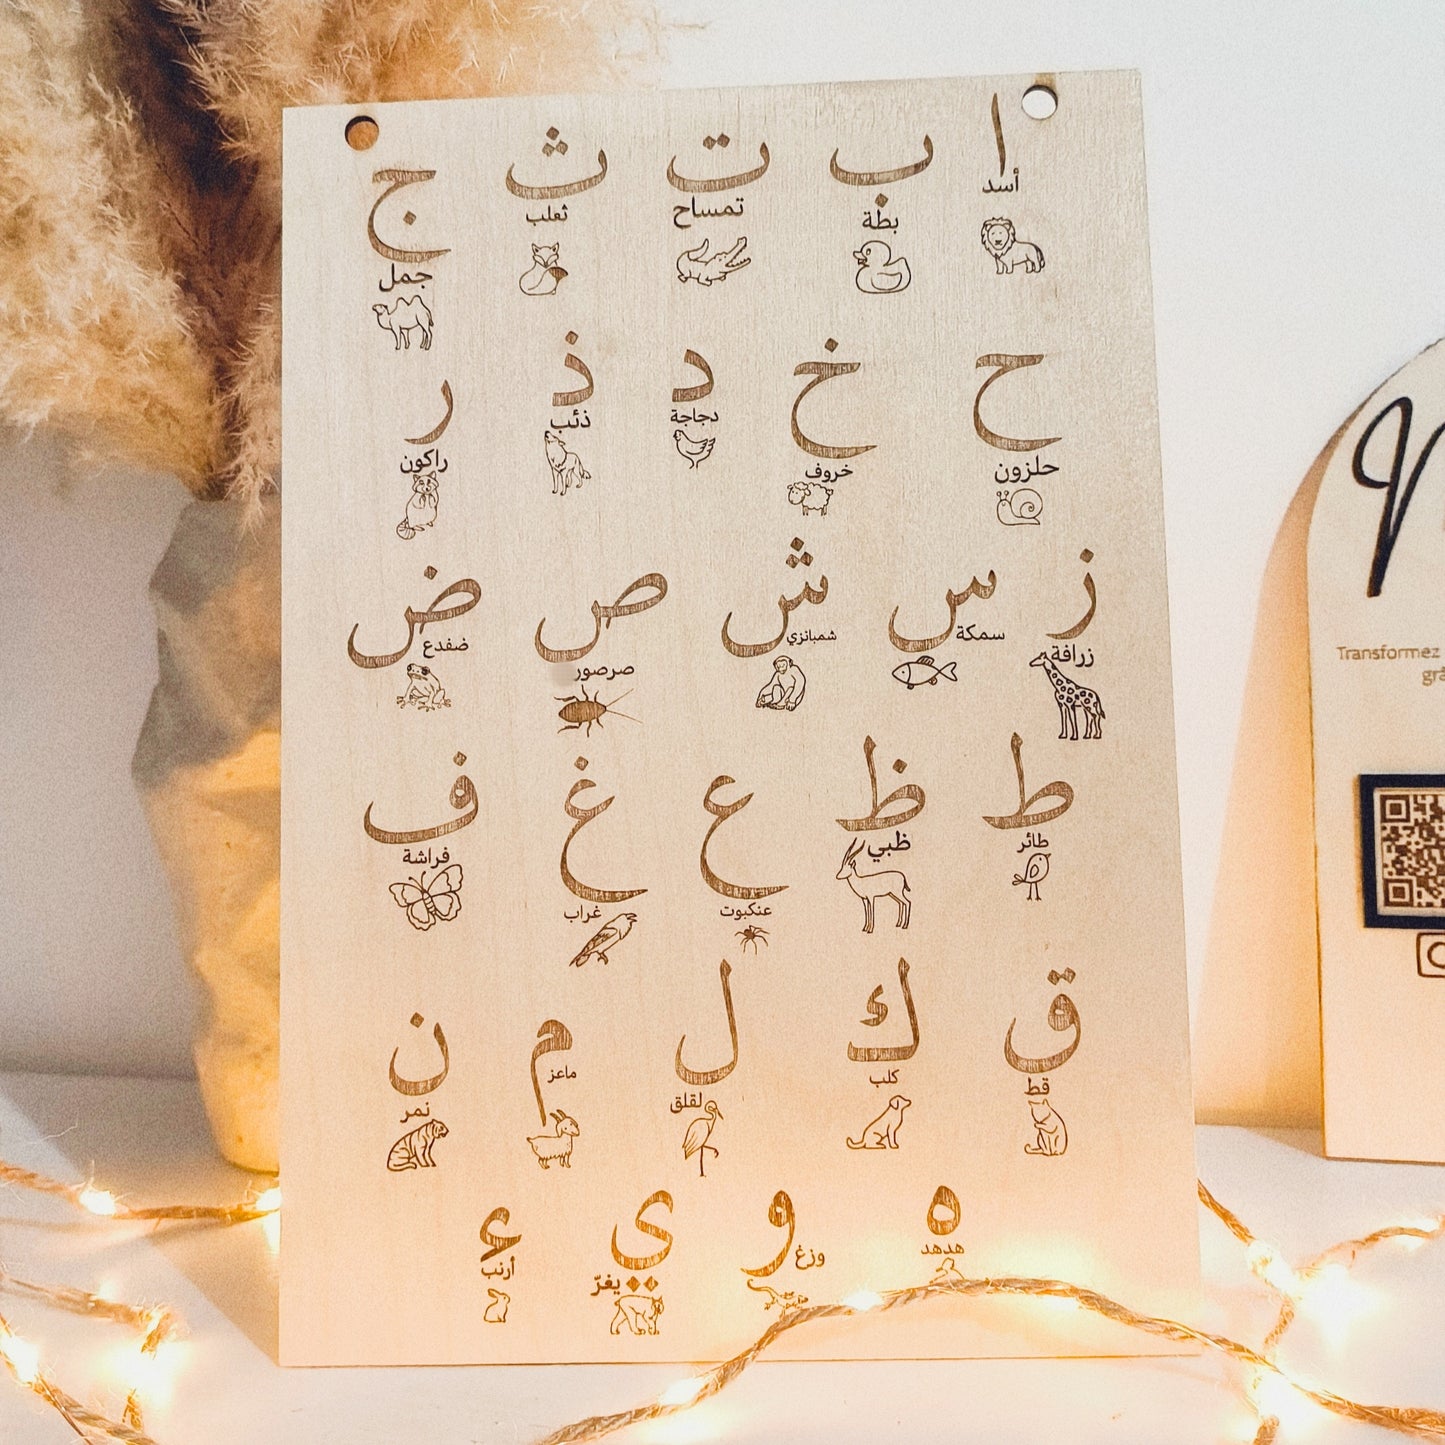 ا ب ت ث ج
أسد بطة تمساح ثعلب جمل
ح خ د ذ ر
حلزون خروف دجاجة ذئب راكون
ز س ش ص ض
زرافة سمكة شمبانزي صرصور ضفدع
ط ظ ع غ ف
طائر ظبي عنكبوت غراب فراشة
ق ك ل م ن
قط كلب لقلق ماعز نمر
ه و ي ء
هدهد وزغ يغرّ أرنب
Transformez